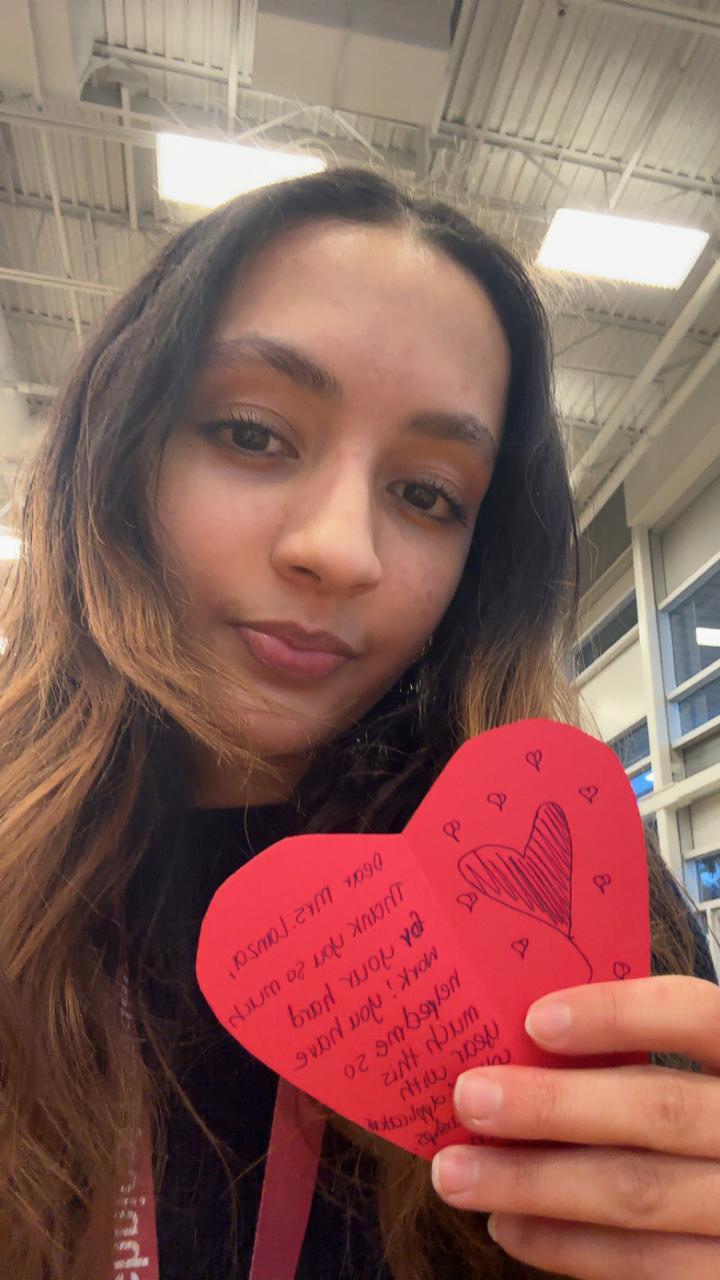 Dear Mrs. Lanza,
Thank you so much
for your hard
work! You have
helped me so
much this
year with